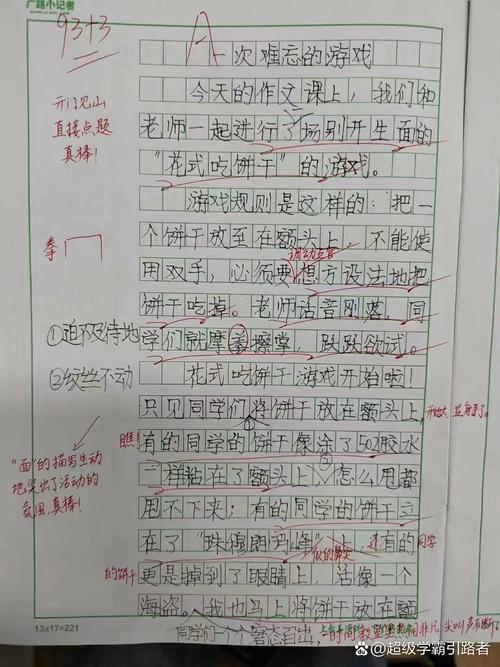 广路小记者
93+3
A
次难忘的游戏
开门见山
直接点题
真棒！
今天的作文课上，我们和
老师一起进行了一场别开生面的
"花式吃饼干"的游戏。
游戏规则是这样的：把一
个饼干放至在额头上，不能使
用双手，必须要想方设法地把
调动五官
饼干吃掉。老师话音刚落，同
拳
①迫不及待地
学们就摩拳擦掌，跃跃欲试。
②纹丝不动
花式吃饼干游戏开始啦！
只见同学们将饼干放在额头上，
①
瞧！
有的同学的饼干像涂了502胶水
一样粘在了额头上，怎么甩都
②
"面"的描写生动
地突出了活动的
氛围，真棒！
甩不下来；有的同学的饼干立
在了"珠穆朗玛峰"上，
似的鼻尖
还有的同学
的饼干
更是掉到了眼睛上，活像一个
海盗。我也马上将饼干放在额
同学们一个个窘态百出，
13x17=221
@超级学霸引路者